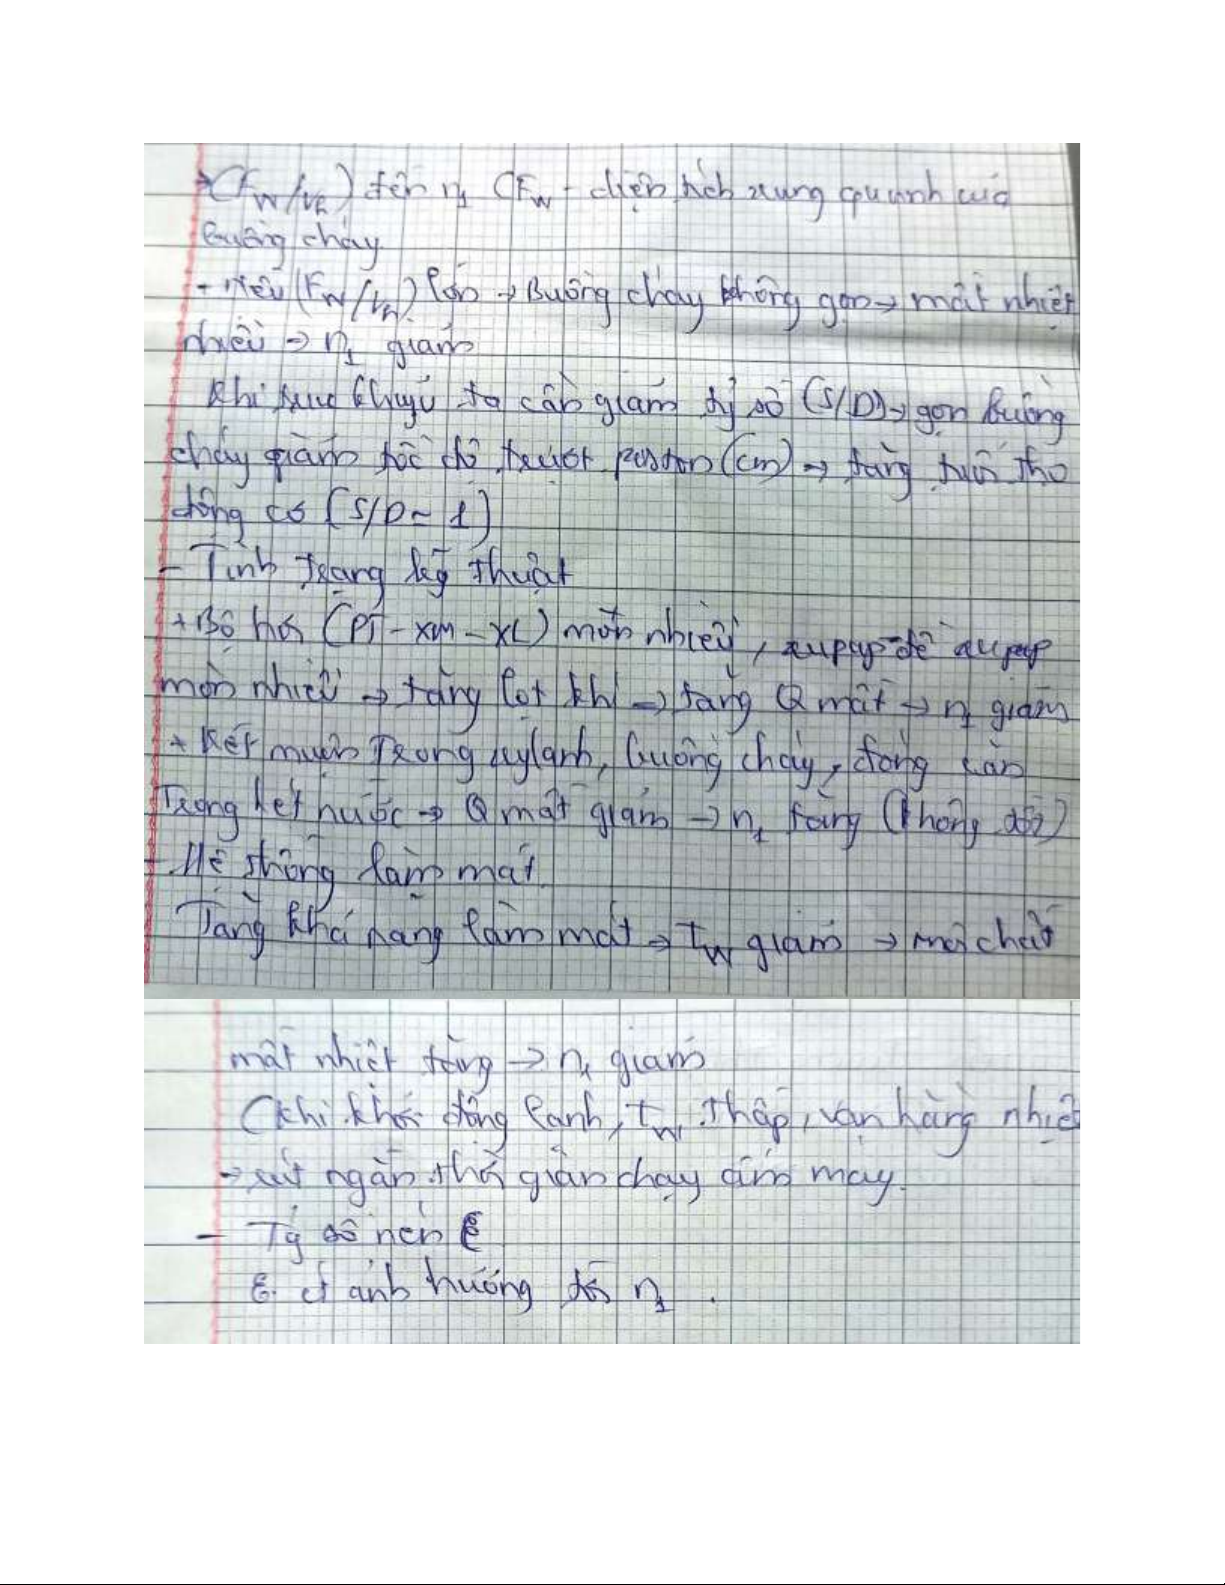 →(F_W/V_h) đến n₁ (F_W - diện tích xung quanh của
buồng cháy
- nếu (F_W/V_h) lớn → Buồng cháy không gọn → mất nhiệt
nhiều → n₁ giảm
Khi ta cần giảm tỷ số (S/D) → gọn buồng
cháy giảm tốc độ trượt piston (cm) → tăng tuổi thọ
động cơ (S/D ~ 1)
- Tình trạng kỹ thuật
+ Bộ hơi (PT - XM - XL) mòn nhiều, xupap đế xupap
mòn nhiều → tăng lọt khí → tăng Q mất → n₁ giảm
+ Kết muội Trong xylanh, buồng cháy, đóng cặn
Trong két nước → Q mất giảm → n₁ tăng (không tốt)
- Hê thông làm mát
Tăng khả năng làm mát → T_W giảm → môi chất
mất nhiệt tăng → n₁ giảm
(khi khởi động lạnh, t_W thấp, nhiệt
→ rút ngắn thời gian chạy ấm máy.
- Tỷ số nén ε
ε ít ảnh hưởng đến n₁ .